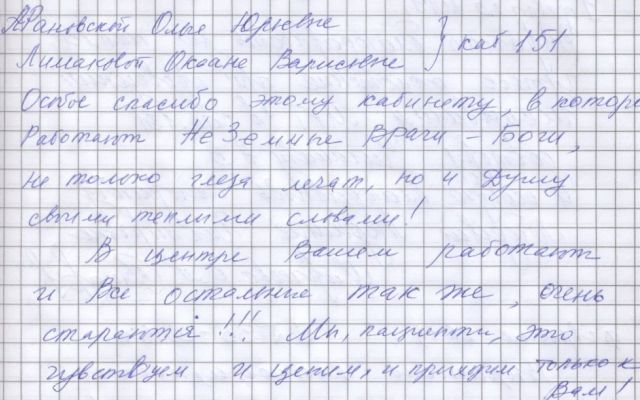 Рановской Ольге Юрьевне
Лимаковой Оксане Варисовне } каб 151
Особое спасибо этому кабинету, в которо
Работают НеЗемные врачи – Боги,
не только глаза лечат, но и Душу
своими теплыми словами!
В центре Вашем работают
и Все остальные так же, очень
стараются!!! Мы, пациенти, это
чувствуем и ценим, и приходим только к
Вам!